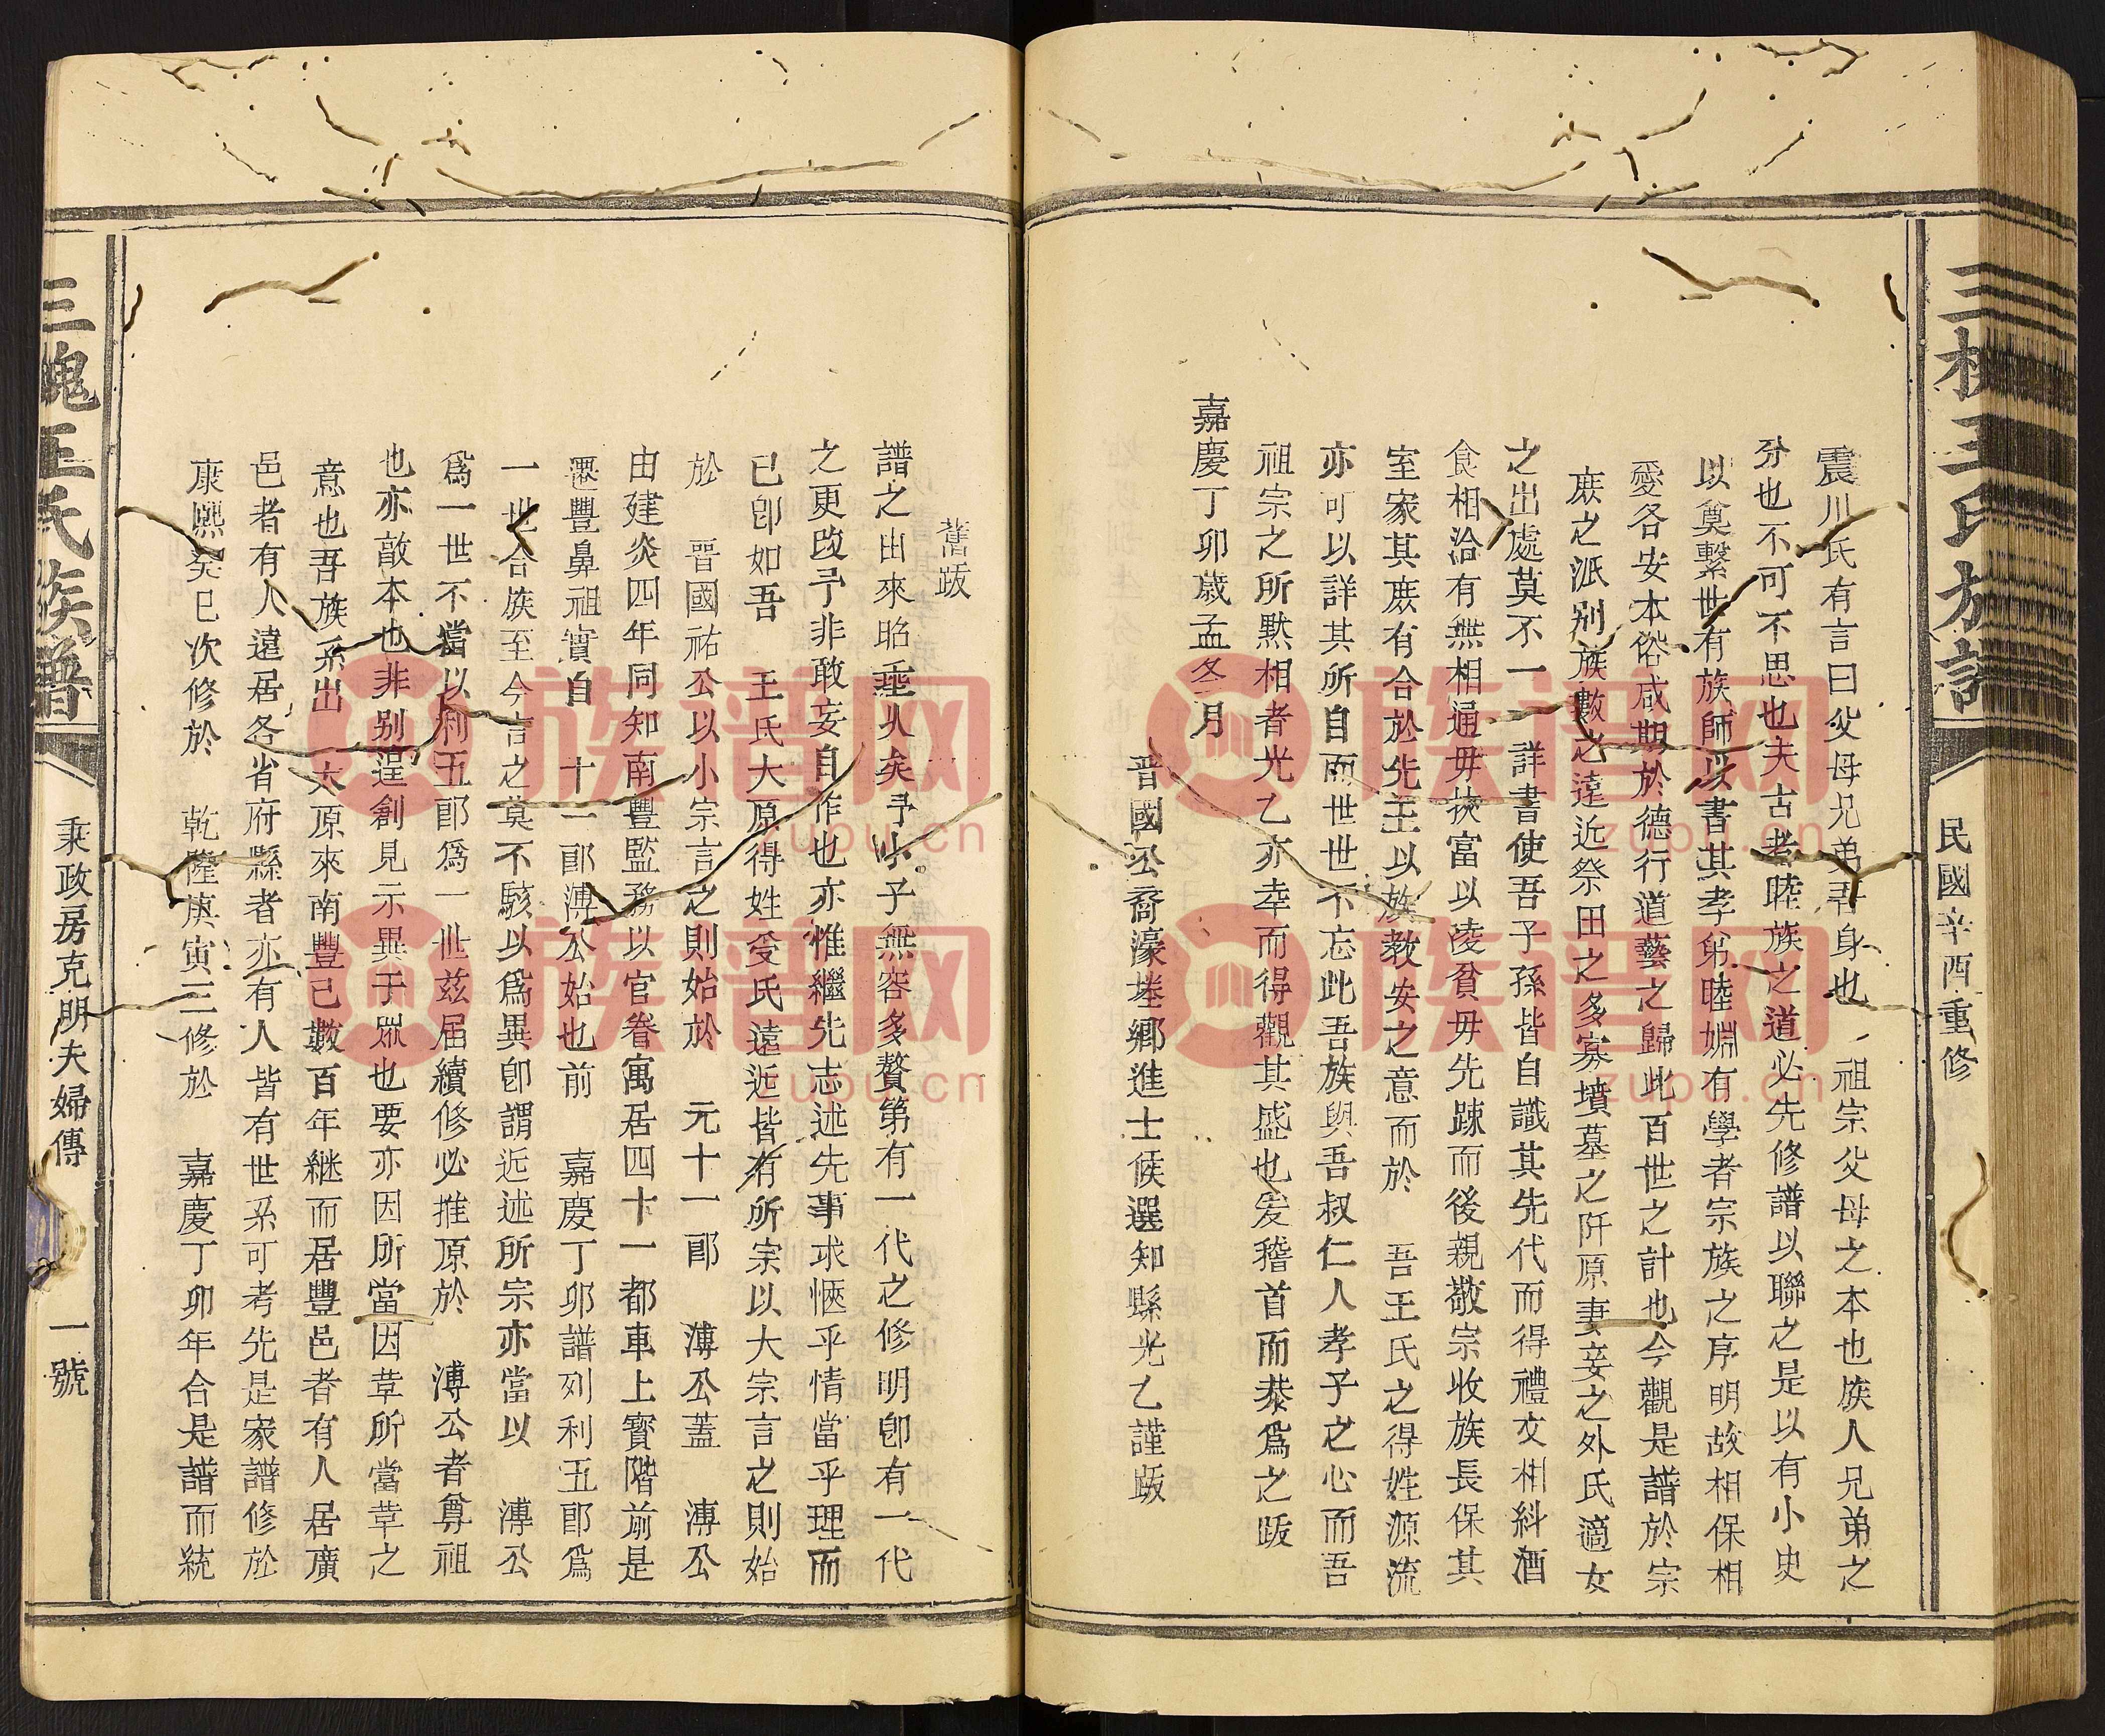 三槐王氏族譜
民國辛酉重修
震川氏有言曰父母兄弟吾身也 祖宗父母之本也族人兄弟之
分也不可不思也夫古者睦族之道必先修譜以聯之是以有小史
以奠繫世有族師以書其孝弟睦婣有學者宗族之序明故相保相
愛各安本俗咸期於德行道藝之歸此百世之計也今觀是譜於宗
庶之派别族數之遠近祭田之多寡墳墓之阡原妻妾之外氏適女
之出處莫不一一詳書使吾子孫皆自識其先代而得禮文相糾酒
食相洽有無相通毋挾富以凌貧毋先踈而後親敬宗收族長保其
室家其庶有合於先王以族教安之意而於 吾王氏之得姓源流
亦可以詳其所自而世世不忘此吾族與吾叔仁人孝子之心而吾
祖宗之所默相者光乙亦幸而得觀其盛也爰稽首而恭爲之䟦
嘉慶丁卯歲孟冬月
晋國公裔濠塘鄉進士候選知縣光乙謹䟦
舊䟦
譜之由來昭垂久矣予小子無容多贅第有一代之修明卽有一代
之更改予非敢妄自作也亦惟繼先志述先事求愜乎情當乎理而
已卽如吾 王氏大原得姓受氏遠近皆有所宗以大宗言之則始
於 晋國祐公以小宗言之則始於 元十一郎 溥公蓋 溥公
由建炎四年同知南豐監務以官眷寓居四十一都車上寳階前是
遷豐鼻祖實自 十一郎溥公始也前 嘉慶丁卯譜列利五郎爲
一世合族至今言之莫不駭以爲異卽謂近述所宗亦當以 溥公
爲一世不當以利五郎爲一世兹届續修必推原於 溥公者尊祖
也亦敵本也非别逞創見示異于衆也要亦因所當因革所當革之
意也吾族系出 大原來南豐已數百年継而居豐邑者有人居廣
邑者有人遠居各省府縣者亦有人皆有世系可考先是家譜修於
康熙癸巳次修於 乾隆庚寅三修於 嘉慶丁卯年合是譜而統
三槐王氏族譜
秉政房克明夫婦傳
一號
族谱网
zupu.cn
族谱网
zupu.cn
族谱网
zupu.cn
族谱网
zupu.cn